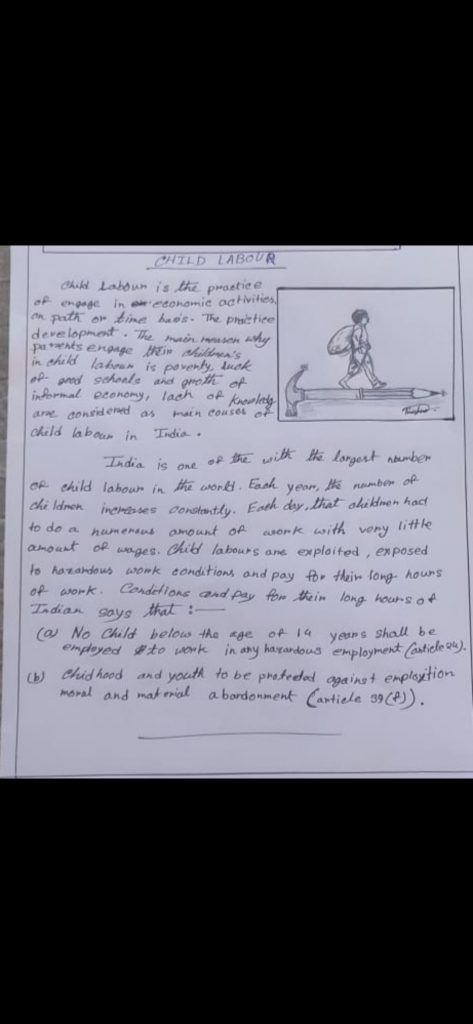 CHILD LABOUR
Child Labour is the practice
of engage in economic activities,
on path or time basis. The practice
development. The main reason why
parents engage their children's
in child labour is poverty, luck
of good schools and groth of
informal economy, lack of knowledg
are considered as main couses of
child labour in India.
India is one of the with the largest number
of child labour in the world. Each year, the number of
children increases constantly. Each day, that children had
to do a numerous amount of work with very little
amount of wages. Child labours are exploited, exposed
to hazardous work conditions and pay for their long hours
of work. Conditions and pay for their long hours of
Indian says that :—
(a) No Child below the age of 14 years shall be
employed to work in any havardous employment (article 24).
(b) Chidhood and youth to be protected against
moral and material abordonment (article 39(f)).